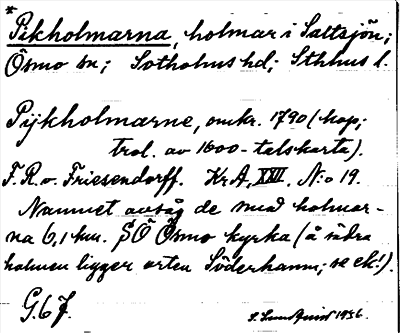 * Pikholmarna, holmar i Saltsjön;
Ösmo sn; Sotholms hd; Sthlms l.
Pijkholmarne, omkr. 1790 (kop;
trol. av 1600-talskarta).
F. R. v. Friesendorff. KrA, XXII, N:o 19.
Namnet avsåg de små holmar-
na 6,1 km. SÖ Ösmo kyrka (å södra
holmen ligger orten Söderhamn; se ek!).
G. 6 f.
1936.